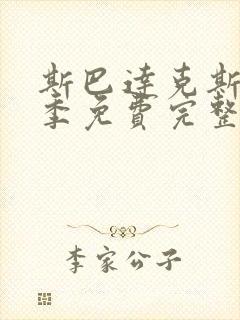 斯巴达克斯
季免費完整
李家公子